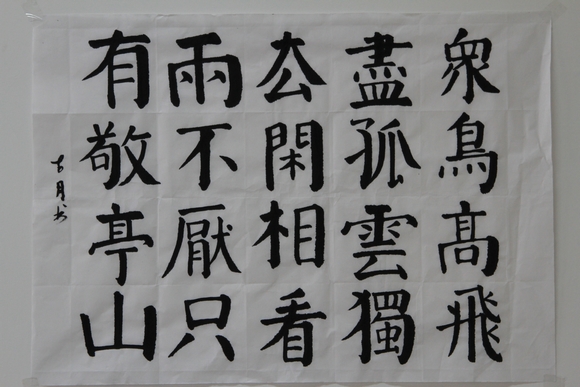 衆鳥髙飛
盡孤雲獨
厺閑相看
兩不厭只
有敬亭山
古月书